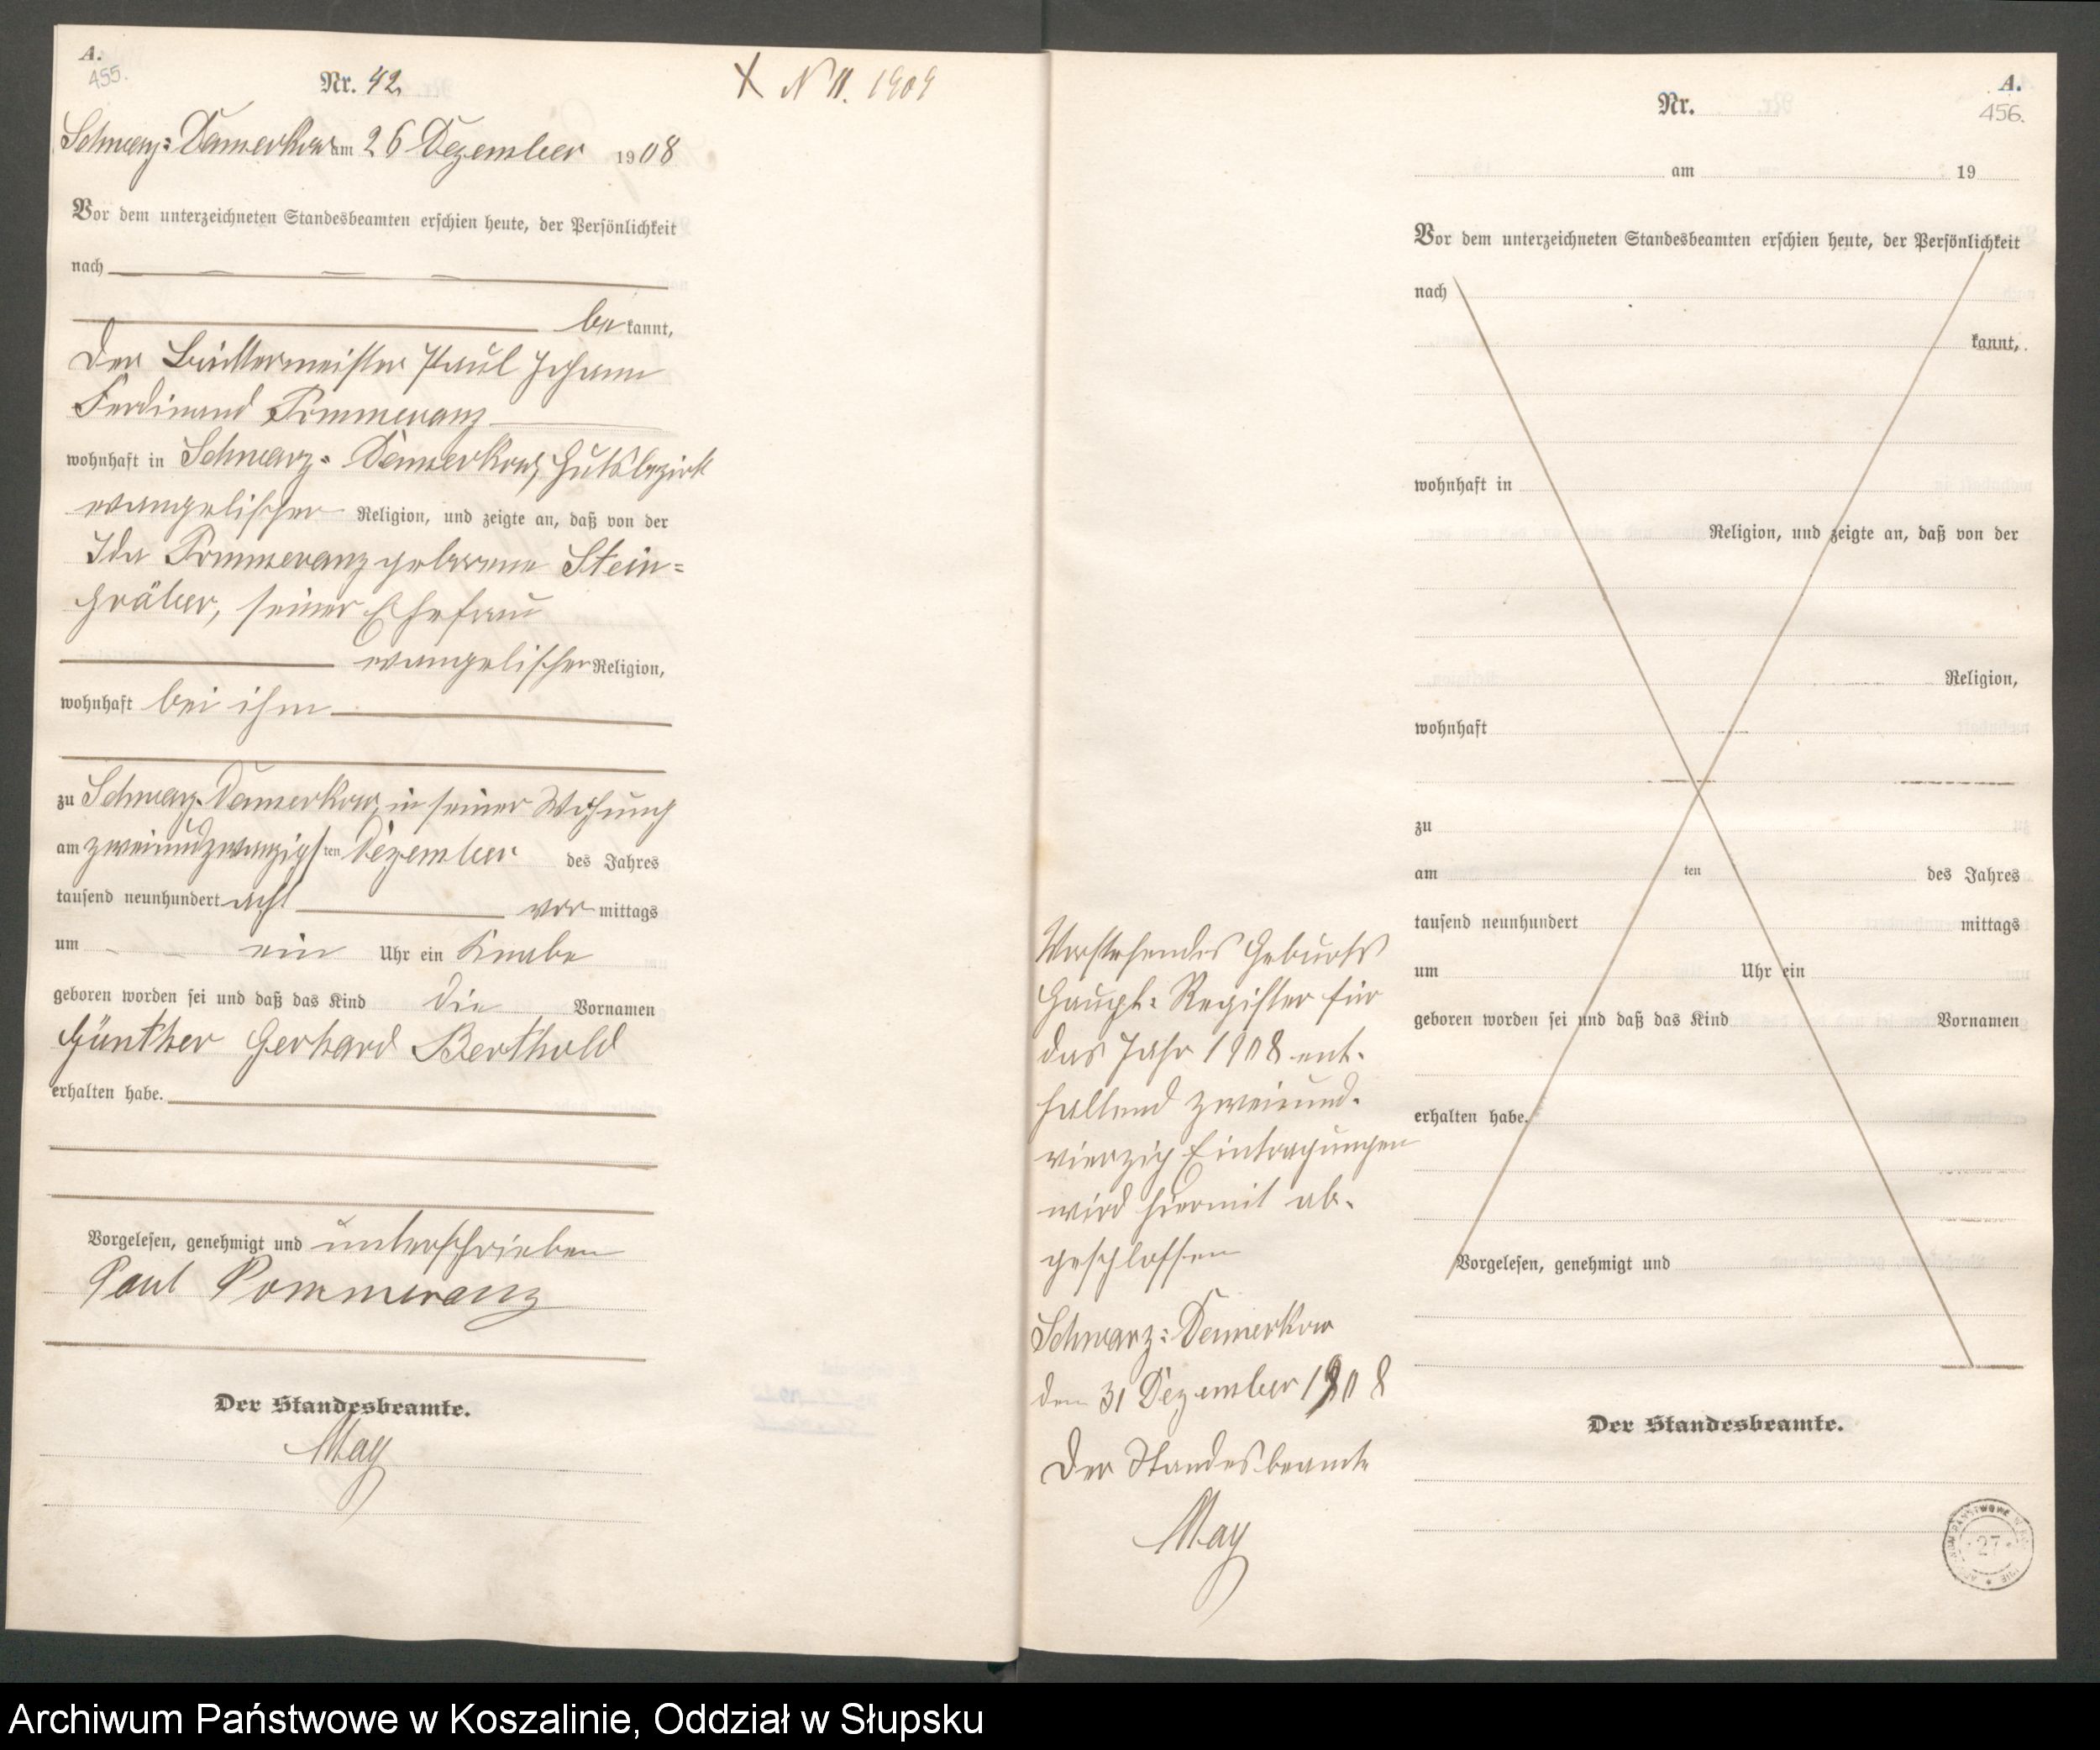 A.
455.
Nr. 42
X N 11. 1909
Schwarz-Damerkow am 26 Dezember 1908
Vor dem unterzeichneten Standesbeamten erschien heute, der Persönlichkeit
nach
be kannt,
der Paul Johann
Ferdinand Pommeranz
wohnhaft in Schwarz-Damerkow, Gutsbezirk
evangelischer Religion, und zeigte an, daß von der
Ida Pommeranz geborene Stein=
gräber, seiner Ehefrau
evangelischer Religion,
wohnhaft bei ihm
zu Schwarz-Damerkow, in seiner Wohnung
am zweiundzwanzigsten Dezember des Jahres
tausend neunhundert acht vor mittags
um ein Uhr ein Knabe
geboren worden sei und daß das Kind die Vornamen
Günther Gerhard Berthold
erhalten habe.
Vorgelesen, genehmigt und unterschrieben
Paul Pommeranz
Der Standesbeamte.
May
Vorstehendes Geburts
Haupt=Register für
das Jahr 1908 ent-
haltend zweiund-
vierzig Eintragungen
wird hiermit ab-
geschlossen
Schwarz=Damerkow
den 31 Dezember 1908
Der Standesbeamte
May
A.
456.
Nr.
am 19
Vor dem unterzeichneten Standesbeamten erschien heute, der Persönlichkeit
nach
kannt,
wohnhaft in
Religion, und zeigte an, daß von der
Religion,
wohnhaft
zu
am ten des Jahres
tausend neunhundert mittags
um Uhr ein
geboren worden sei und daß das Kind Vornamen
erhalten habe.
Vorgelesen, genehmigt und
Der Standesbeamte.
27
Archiwum Państwowe w Koszalinie, Oddział w Słupsku